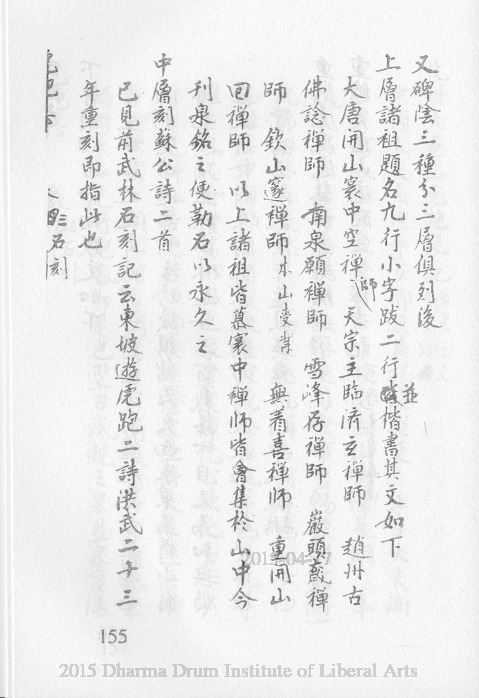 又碑陰三種分三層俱列後
上層諸祖題名九行小字跋二行並楷書其文如下
大唐開山寰中空禪師 天宗主臨濟玄禪師 趙州古
佛諗禪師 南泉願禪師 雪峰存禪師 巖頭奯禪
師 欽山邃禪師本山受業 無着喜禪師 重開山
囘禪師 以上諸祖皆慕寰中禪師皆會集於山中今
刊泉銘之便勒石以永久之
中層刻蘇公詩二首
已見前武林石刻記云東坡遊虎跑二詩洪武二十三
年重刻即指此也
石刻
2015-04-
155
2015 Dharma Drum Institute of Liberal Arts